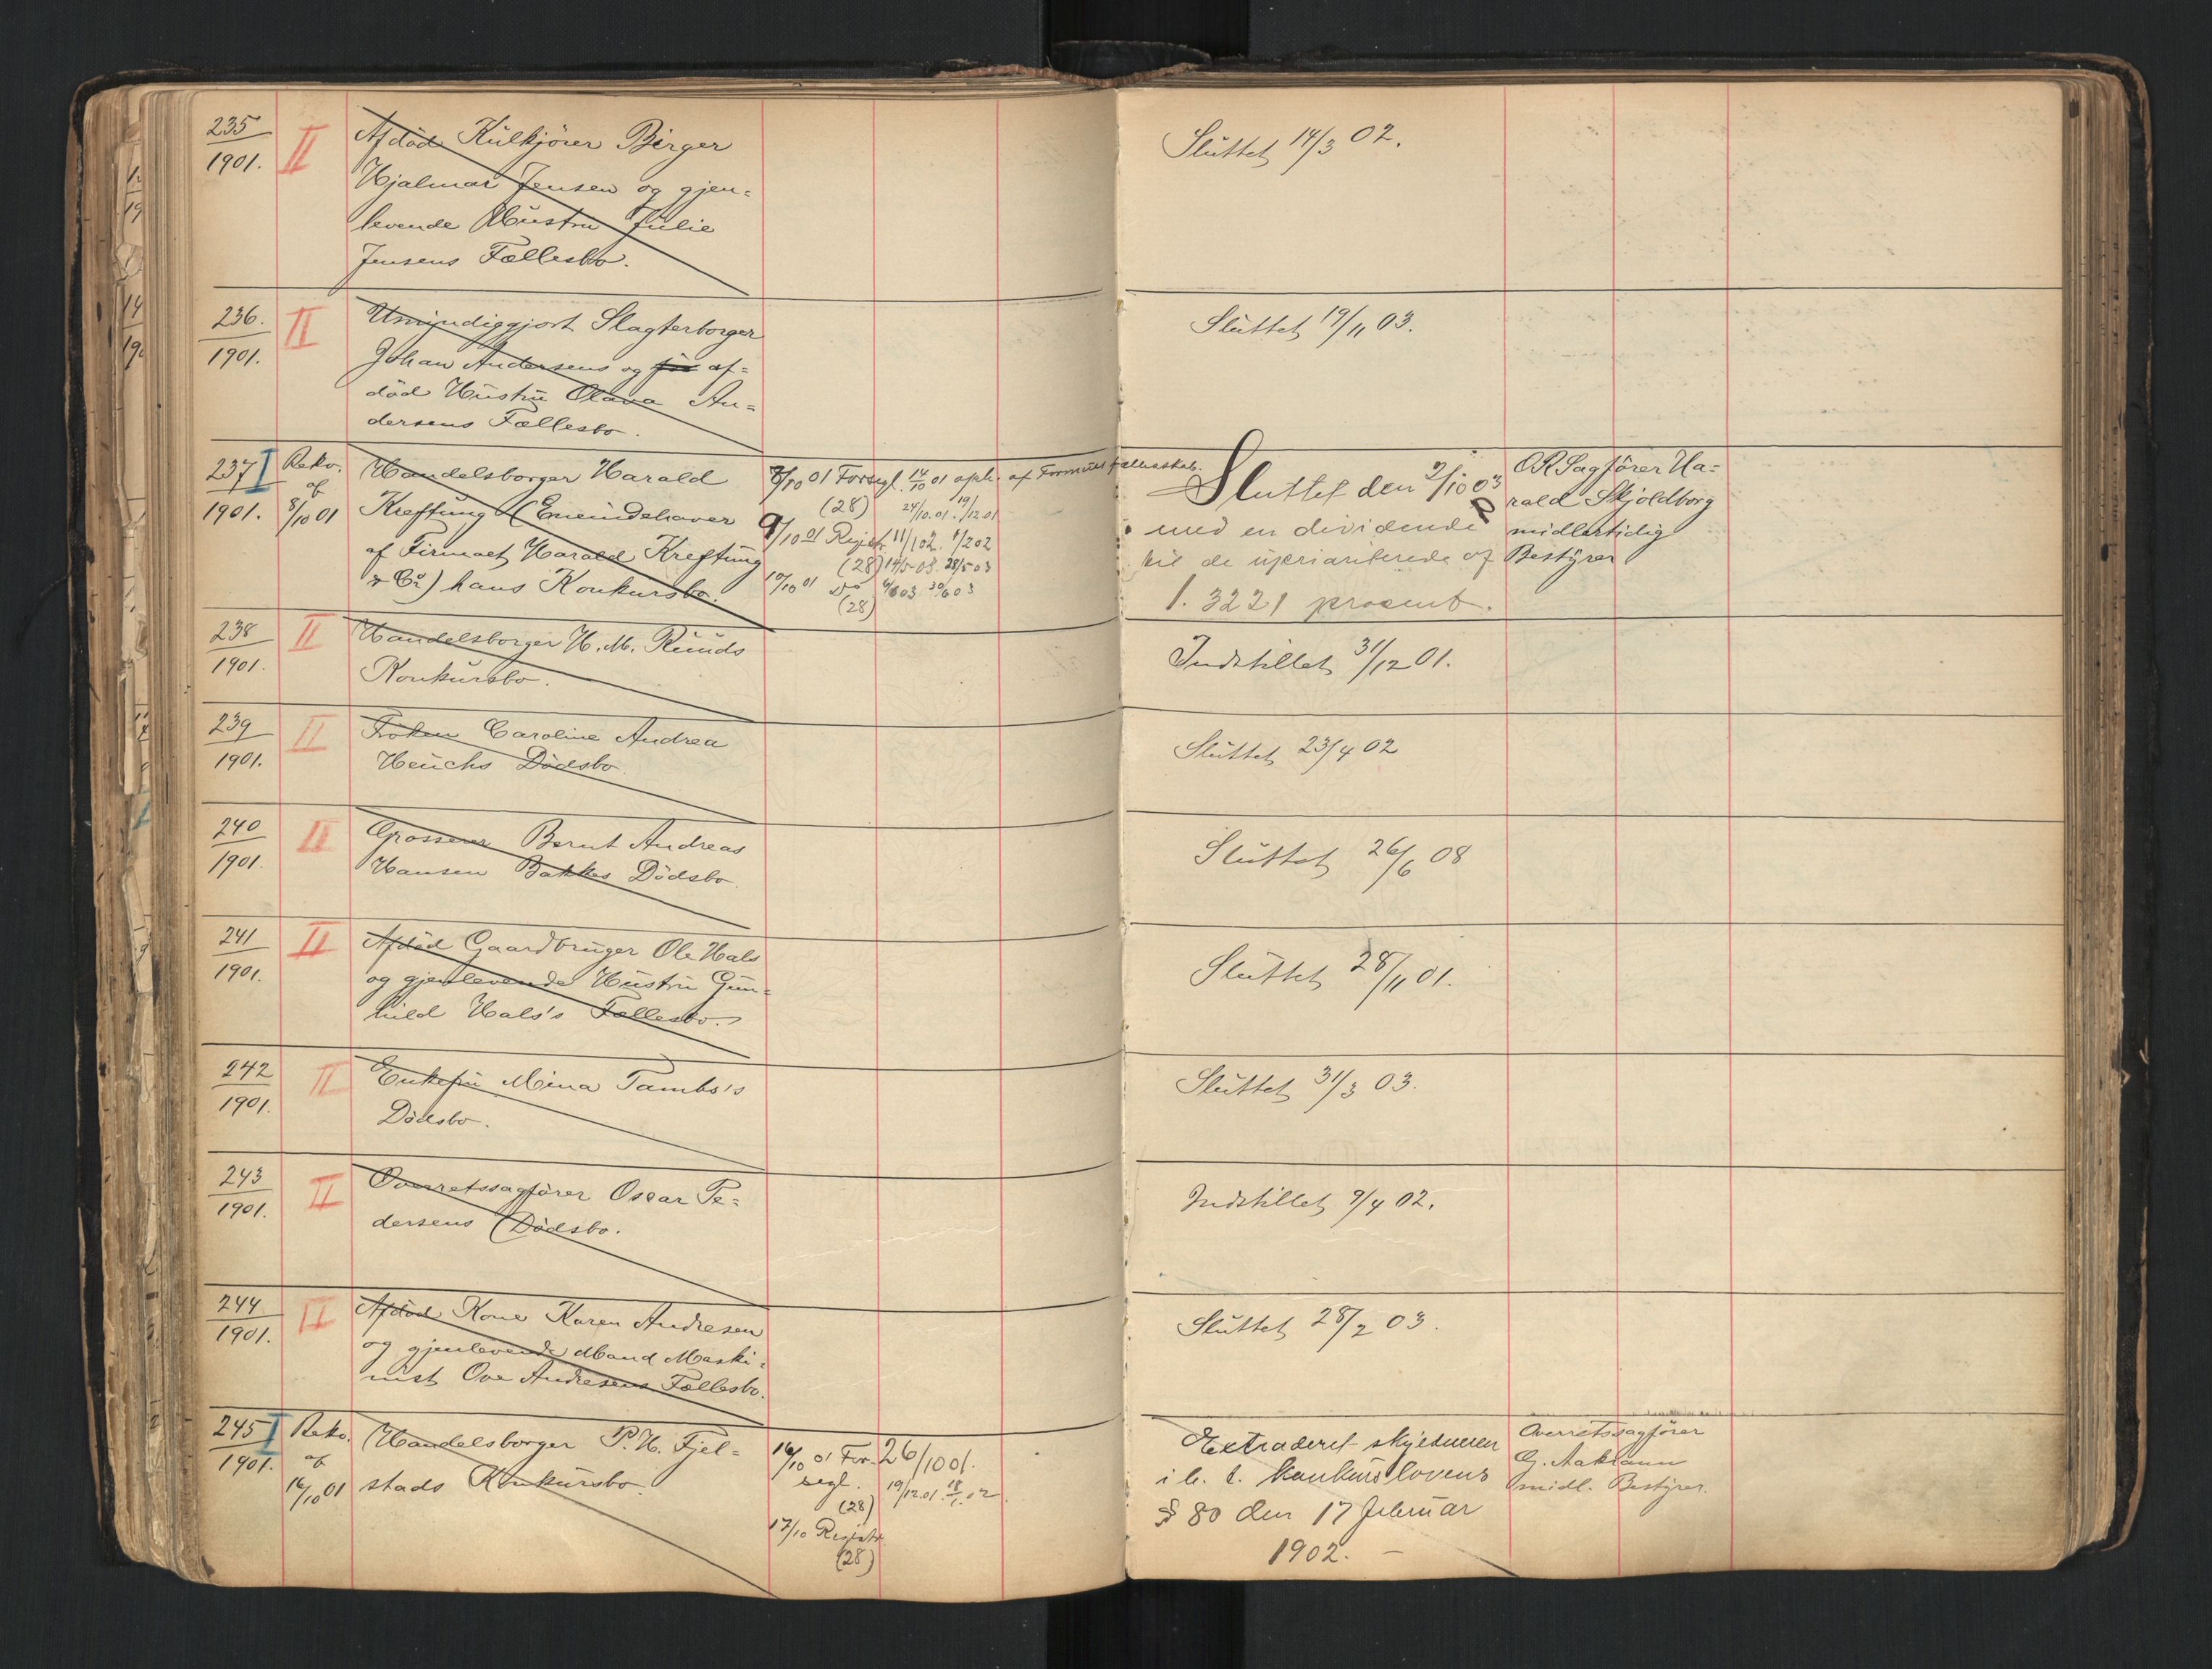 235
1901.
II
Afdöd Kulkjörer Birger
Hjalmar Jensen og gjen-
levende Hustru Julie
Jensens Fællesbo.
Sluttet 14/3 02.
236.
1901.
II
Umyndiggjort Slagterborger
Johan Andersens og af-
död Hustru Olava An-
dersens Fællesbo.
Sluttet 19/11 03.
237
1901.
I
Rekv.
af
8/10 01
Handelsborger Harald
Kreftung (Eneindehaver
af Firmaet Harald Kreftung
& Co) hans Konkursbo.
8/10 01 Forsegl.
(28)
9/10 01 Registr.
(28)
10/10 01 Do
(28)
14/10 01 oph. af Formuesfællesskab.
24/10.01. 19/12 01
11/1 02. 1/2 02
14/5 03. 28/5 03
4/6 03 30/6 03
Sluttet den 9/10 03
med en dividende
til de uprioriterede af
1.3221 procent.
OR Sagförer Ha-
rald Skjoldborg
midlertidig
Bestyrer
238
1901.
II
Handelsborger H. M. Ruuds
Konkursbo.
Indstillet 31/12 01.
239
1901.
II
Fröken Caroline Andrea
Heuchs Dödsbo.
Sluttet 23/4 02
240
1901.
II
Grosserer Bernt Andreas
Hansen Bakkes Dödsbo.
Sluttet 26/6 08
241
1901.
II
Afdöd Gaardbruger Ole Hals
og gjenlevende Hustru Gun-
hild Hals's Fællesbo.
Sluttet 28/11 01.
242
1901.
II
Enkefru Mina Tambs's
Dödsbo.
Sluttet 31/3 03.
243
1901.
II
Overretssagförer Oscar Pe-
dersens Dödsbo.
Indstillet 9/4 02.
244
1901.
II
Afdöd Kone Karen Andresen
og gjenlevende Mand Maski-
nist Ove Andresens Fællesbo.
Sluttet 28/2 03.
245
1901.
I
Rekv.
af
16/10 01
Handelsborger P. H. Fjel-
stads Konkursbo.
16/10 01 For-
segl.
(28)
17/10 Registr.
(28)
26/10 01.
19/12 01. 18/1. 02
Extraderet skyldneren
i h. t. konkurslovens
§ 80 den 17 februar
1902. –
Overretssagförer
G. Aaklann
midl. Bestyrer.